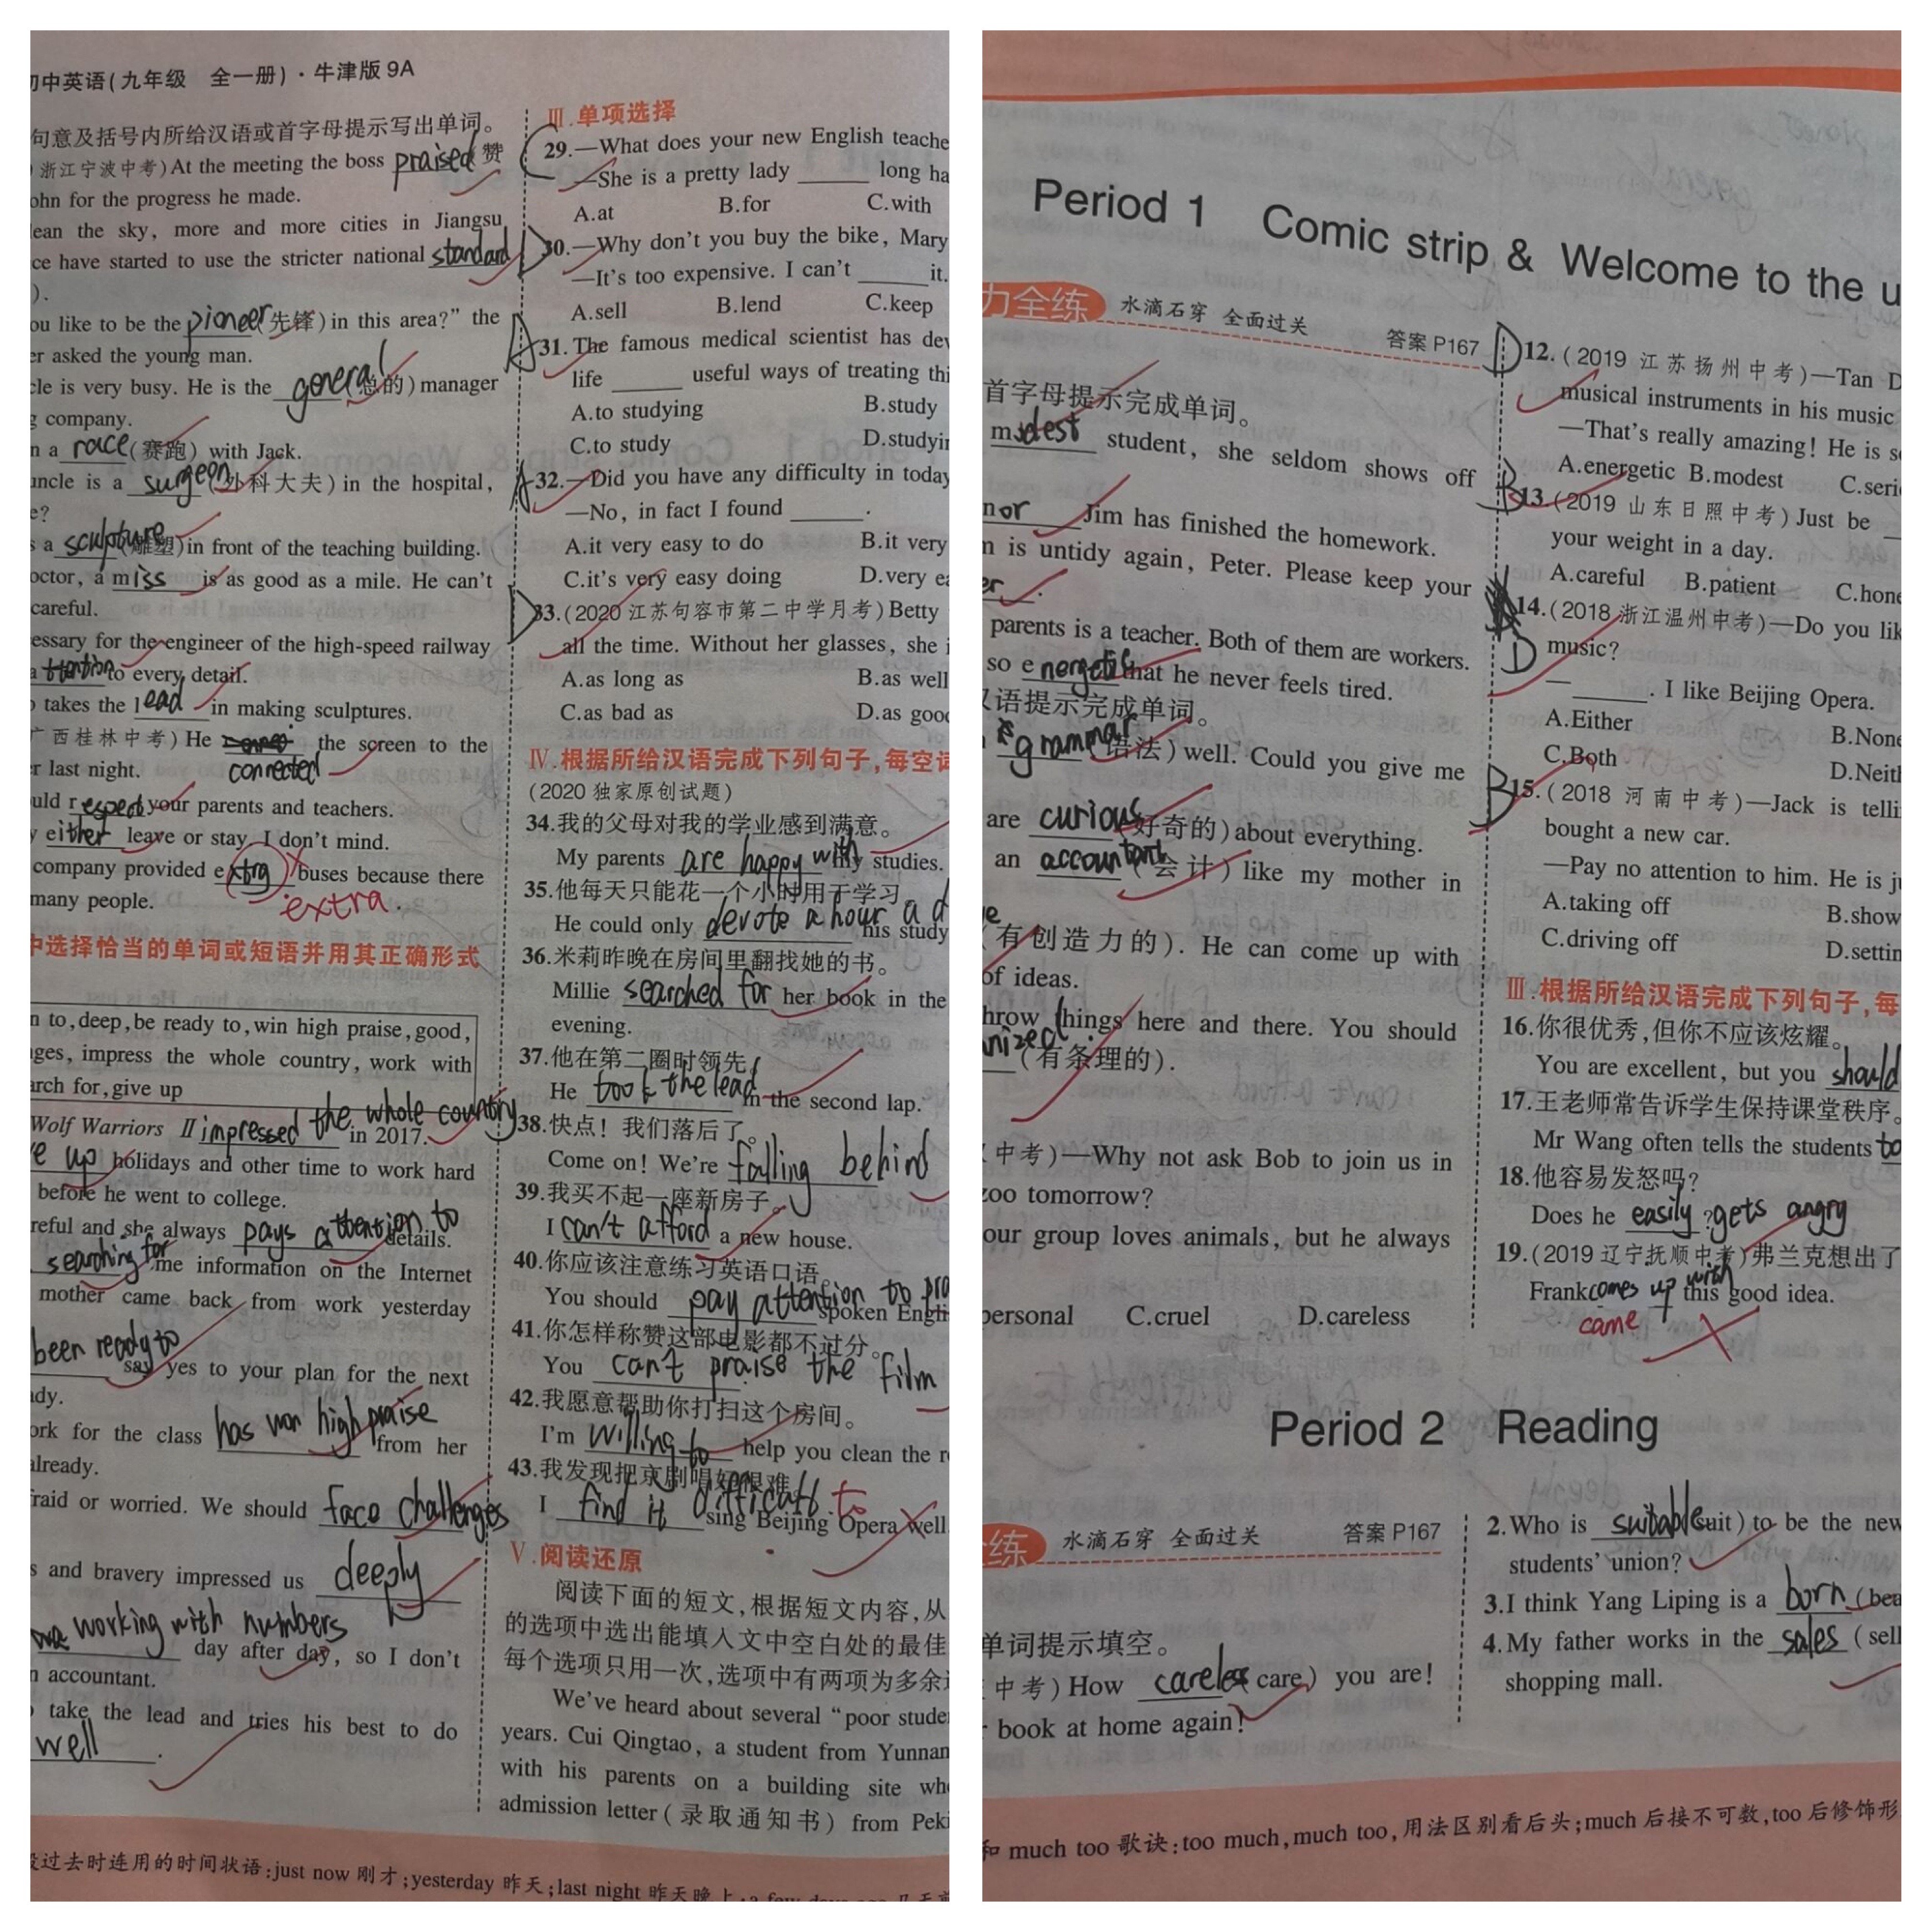 初中英语(九年级 全一册)·牛津版 9A
句意及括号内所给汉语或首字母提示写出单词。
浙江宁波中考)At the meeting the boss praised(赞
ohn for the progress he made.
lean the sky, more and more cities in Jiangsu
ce have started to use the stricter national standard
).
ou like to be the pioneer(先锋)in this area?” the
er asked the young man.
cle is very busy. He is the general(总的)manager
g company.
n a race(赛跑) with Jack.
uncle is a surgeon(外科大夫)in the hospital,
e?
s a sculpture(雕塑)in front of the teaching building.
octor, a miss is as good as a mile. He can't
careful.
essary for the engineer of the high-speed railway
attention to every detail.
o takes the lead in making sculptures.
广西桂林中考)He connected the screen to the
r last night.
uld respect your parents and teachers.
y either leave or stay. I don't mind.
company provided extrg buses because there
many people. extra.
中选择恰当的单词或短语并用其正确形式
n to, deep, be ready to, win high praise, good,
ges, impress the whole country, work with
arch for, give up
Wolf Warriors Ⅱ impressed the whole country in 2017.
ve up holidays and other time to work hard
before he went to college.
reful and she always pays attention to details.
searching for me information on the Internet
mother came back from work yesterday
been ready to say yes to your plan for the next
dy.
ork for the class has won high praise from her
already.
fraid or worried. We should face challenges
s and bravery impressed us deeply
working with numbers day after day, so I don't
n accountant.
o take the lead and tries his best to do
well.
Ⅲ.单项选择
29.—What does your new English teache
—She is a pretty lady ______ long ha
A.at B.for C.with
30.—Why don't you buy the bike, Mary
—It's too expensive. I can't ______ it.
A.sell B.lend C.keep
31.The famous medical scientist has dev
life ______ useful ways of treating thi
A.to studying B.study
C.to study D.studyin
32.—Did you have any difficulty in today
—No, in fact I found ______.
A.it very easy to do B.it very
C.it's very easy doing D.very ea
33.(2020 江苏句容市第二中学月考)Betty
all the time. Without her glasses, she i
A.as long as B.as well
C.as bad as D.as good
Ⅳ.根据所给汉语完成下列句子,每空词
(2020 独家原创试题)
34.我的父母对我的学业感到满意。
My parents are happy with my studies.
35.他每天只能花一个小时用于学习。
He could only devote a hour a d his study
36.米莉昨晚在房间里翻找她的书。
Millie searched for her book in the
evening.
37.他在第二圈时领先。
He took the lead in the second lap.
38.快点! 我们落后了。
Come on! We're falling behind
39.我买不起一座新房子。
I can't afford a new house.
40.你应该注意练习英语口语。
You should pay attention to pra spoken Engli
41.你怎样称赞这部电影都不过分。
You can't praise the film
42.我愿意帮助你打扫这个房间。
I'm willing to help you clean the r
43.我发现把京剧唱好很难。
I find it difficalt to sing Beijing Opera well
Ⅴ.阅读还原
阅读下面的短文,根据短文内容,从
的选项中选出能填入文中空白处的最佳
每个选项只用一次,选项中有两项为多余
We've heard about several “poor stude
years. Cui Qingtao, a student from Yunnan
with his parents on a building site wh
admission letter(录取通知书) from Peki
般过去时连用的时间状语:just now 刚才;yesterday 昨天;last night 昨天晚上
Period 1 Comic strip & Welcome to the u
力全练 水滴石穿 全面过关 答案 P167
首字母提示完成单词。
modest student, she seldom shows off
nor Jim has finished the homework.
m is untidy again, Peter. Please keep your
er.
parents is a teacher. Both of them are workers.
so energetic that he never feels tired.
汉语提示完成单词。
grammar(语法) well. Could you give me
are curious(好奇的)about everything.
an accountant(会计) like my mother in
ve
(有创造力的). He can come up with
of ideas.
hrow things here and there. You should
nized(有条理的).
中考)—Why not ask Bob to join us in
zoo tomorrow?
our group loves animals, but he always
personal C.cruel D.careless
12.(2019 江苏扬州中考)—Tan D
musical instruments in his music
—That's really amazing! He is s
A.energetic B.modest C.seri
13.(2019 山东日照中考)Just be
your weight in a day.
A.careful B.patient C.hone
14.(2018 浙江温州中考)—Do you lik
D music?
—______. I like Beijing Opera.
A.Either B.None
C.Both D.Neith
15.(2018 河南中考)—Jack is telli
bought a new car.
—Pay no attention to him. He is j
A.taking off B.show
C.driving off D.settin
Ⅲ.根据所给汉语完成下列句子,每
16.你很优秀,但你不应该炫耀。
You are excellent, but you should
17.王老师常告诉学生保持课堂秩序。
Mr Wang often tells the students to
18.他容易发怒吗?
Does he easily ? gets angry
19.(2019 辽宁抚顺中考)弗兰克想出了
Frank comes up with this good idea.
came
Period 2 Reading
练 水滴石穿 全面过关 答案 P167
单词提示填空。
中考)How careless(care) you are!
r book at home again!
2.Who is suitable(suit) to be the new
students' union?
3.I think Yang Liping is a born (bea
4.My father works in the sales (sell
shopping mall.
和 much too 歌诀:too much,much too,用法区别看后头;much 后接不可数,too 后修饰形